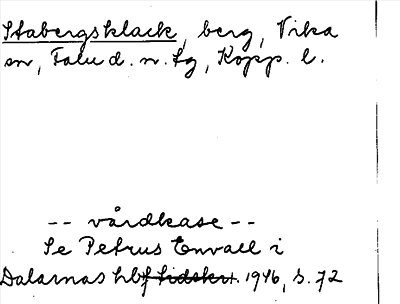 Stabergsklack, berg, Vika
sn, Falu d. n. tg, Kopp. l.
-- vårdkase --
Se Petrus Envall i
Dalarnas hbf tidskr. 1946, s. 72